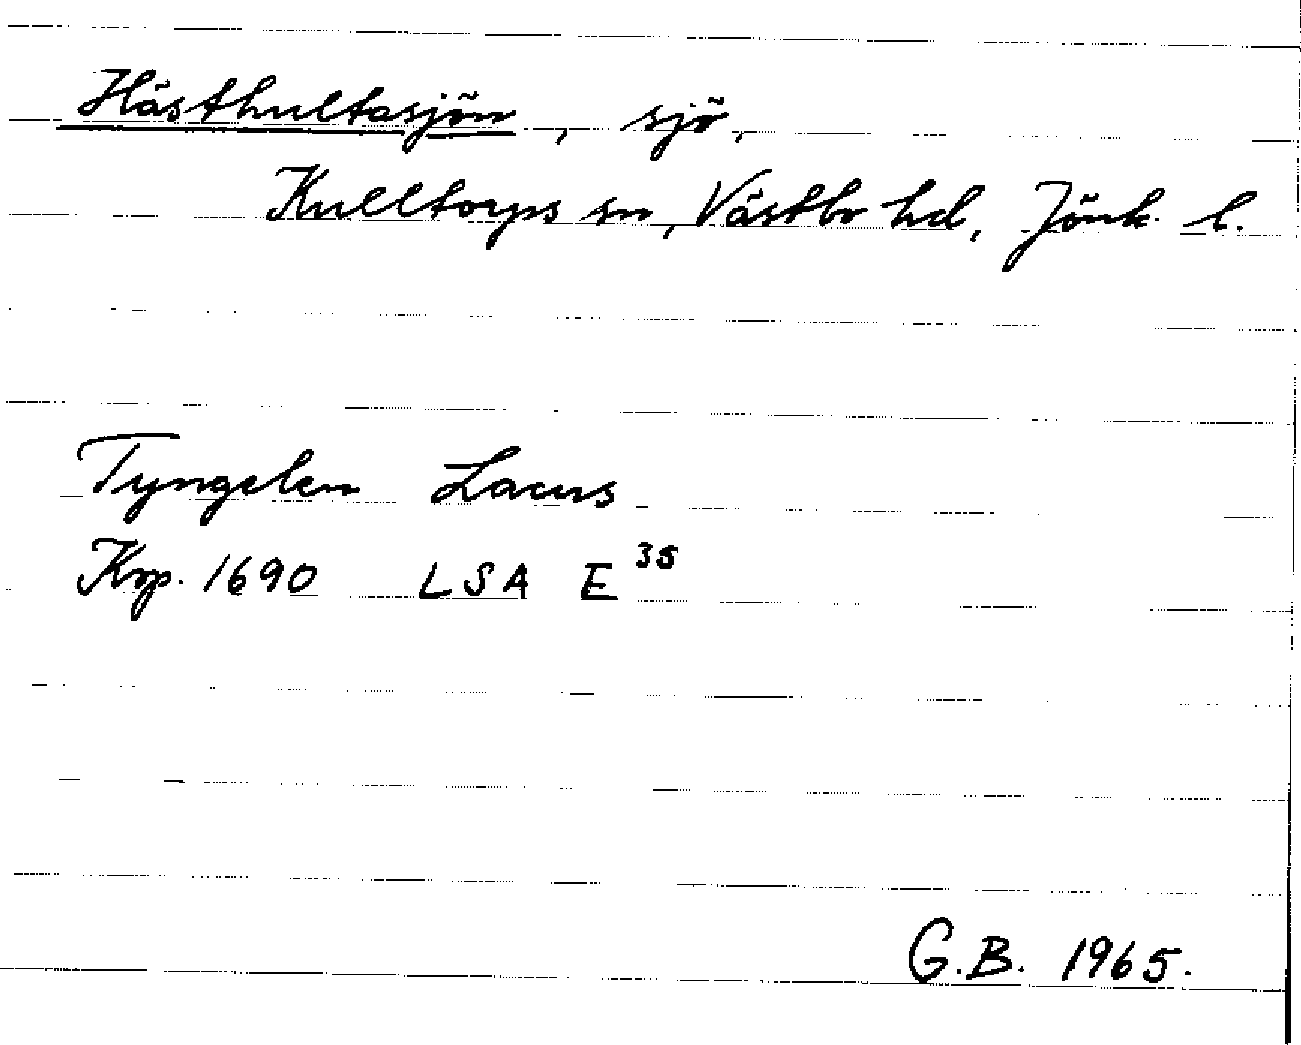 Hästhultasjön, sjö,
Kulltorps sn, Västbo hd, Jönk. l.
Tyngelen Lacus
Kop. 1690 LSA E 35
G.B. 1965.